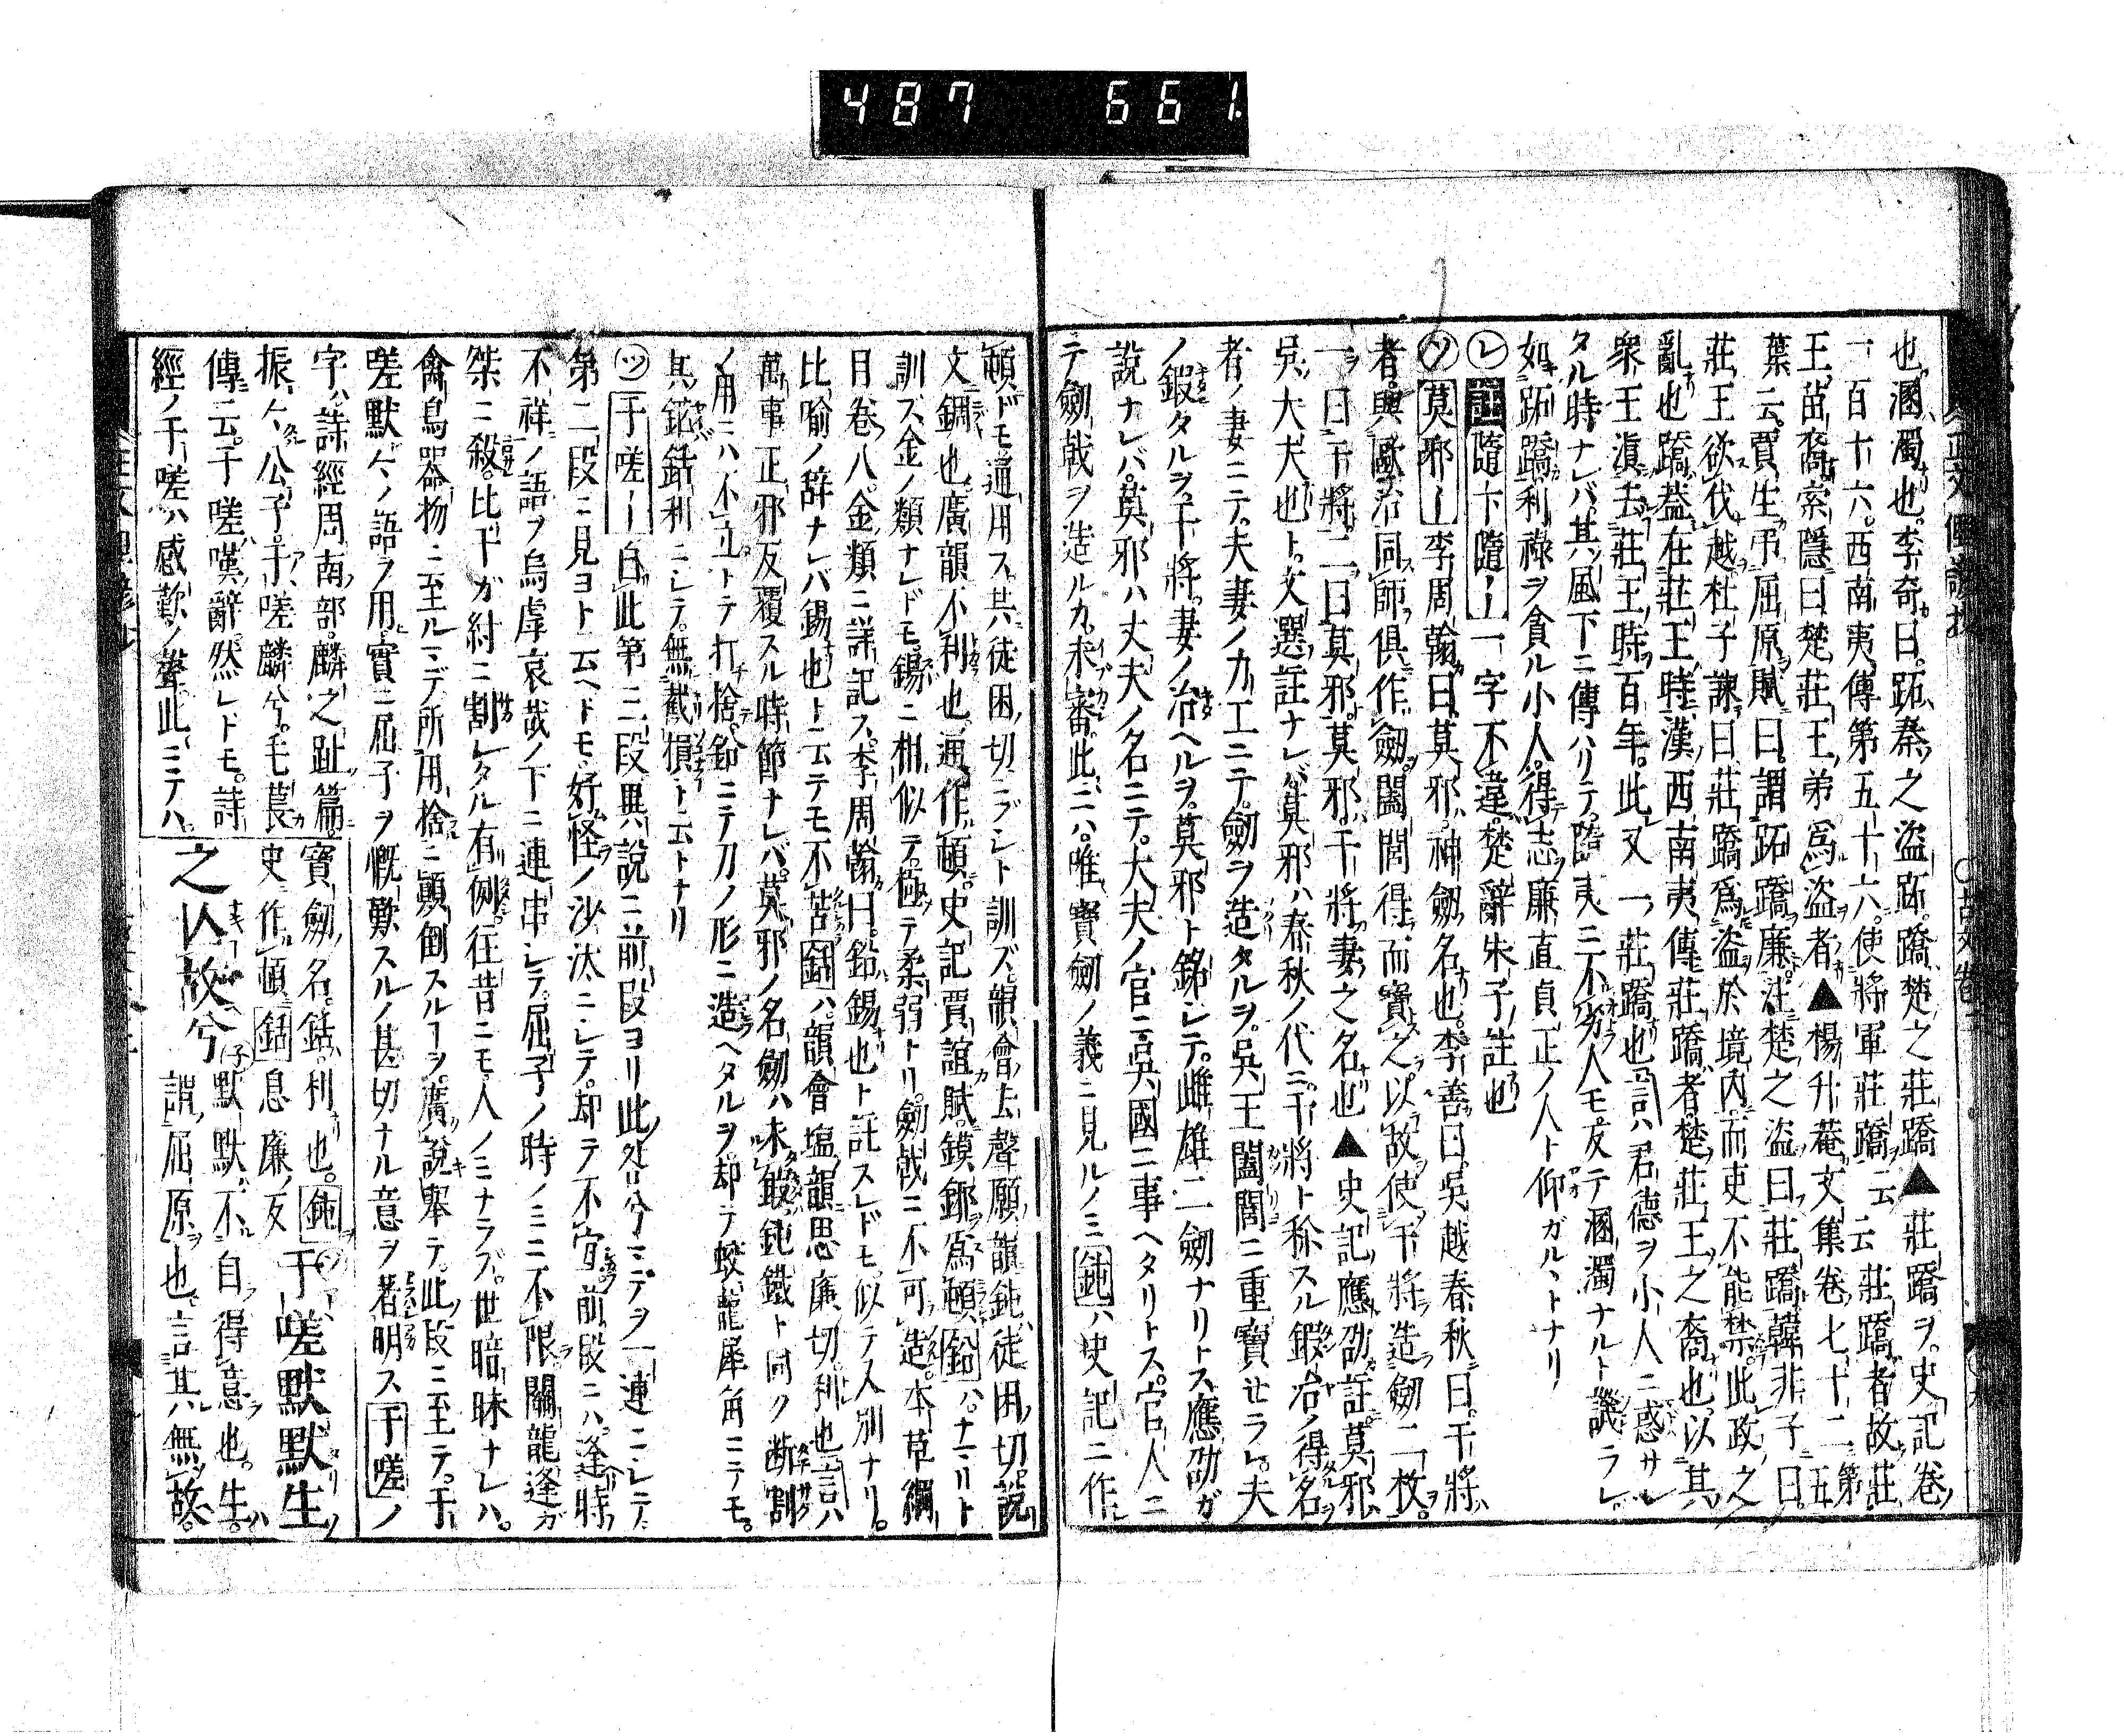 487 661
也溷濁也李奇曰跖秦之盗跖蹻楚之莊蹻▲莊蹻ヲ史記卷
一百十六西南夷傳第五十六使將軍莊蹻云云莊蹻者故莊
王苗裔索隱曰楚莊王弟爲盗者▲楊升菴文集卷七十二第五
葉云賈生弔屈原賦曰謂跖蹻廉注楚之盗曰莊蹻韓非子曰
莊王欲伐越杜子諫曰莊蹻爲盗於境内而吏不能禁此政之
亂也蹻葢在莊王時漢西南夷傳莊蹻者楚莊王之裔也以其
衆王滇去莊王時百年此又一莊蹻也言ハ君德ヲ小人ニ惑サレ
タル時ナレバ其風下ニ傳ハリテ隨夷ニ不劣人モ反テ溷濁ナルト譏ラレ
如跖蹻利祿ヲ貪ル小人得志廉直貞正ノ人ト仰ガルヽトナリ
㋹註隨卞隨ー一字不違楚辭朱子註也
㋡莫邪ー李周翰曰莫邪神劔名也李善曰吳越春秋曰干將
者與歐冶同師俱作劔闔閭得而寶之以故使干將造劔二枚
一曰干將二曰莫邪莫邪干將妻之名也▲史記應劭註莫邪
吳大夫也ト文選註ナレバ莫邪ハ春秋ノ代ニ干將ト稱スル鍛冶ノ得名
者ノ妻ニテ夫妻ノ力工ニテ劔ヲ造タルヲ吳王闔閭ニ重寶セラレ夫
ノ鍛タルヲ干將妻ノ冶ヘルヲ莫邪ト銘シテ雌雄二劔ナリトス應劭ガ
説ナレバ莫邪ハ丈夫ノ名ニテ大夫ノ官ニ吳國ニ事ヘタリトス官人ニ
テ劔戟ヲ造ルカ未審此ニハ唯寶劔ノ義ニ見ルノミ鈍ハ史記ニ作
頓ドモ通用ス共徒困切ニブシト訓ズ韻會去聲願韻鈍徒困切説
文錭也廣韻不利也通作頓史記賈誼賦鏌鎁爲頓鉛ハナマリト
訓ズ金ノ類ナレドモ錫ニ相似テ極テ柔弱トリ劔戟ニ不可造本草綱
目卷八金類ニ詳記ス李周翰曰鉛錫也ト註スレドモ似テ入別ナリ
比喻ノ辭ナレバ錫也ト云テモ不苦銛ハ韻會塩韻思廉切利也言ハ
萬事正邪反覆スル時節ナレバ莫邪ノ名劔ハ未鍛鈍鐵ト同ク断割
ノ用ニハ不立トテ打捨鉛ニテ刀ノ形ニ造ヘタルヲ却テ蛟龍犀角ニテモ
其鉛銛利ニシテ無截損ト云トナリ
㋡于嗟ー自此第三段異説ニ前段ヨリ此処分ミデヲ一連ニシテ
第二段ニ見ヨト云ヘドモ好怪ノ沙汰ニシテ却テ不宜前段ニハ逢時
不祥ノ語ヲ烏虖哀哉ノ下ニ連串シテ屈子ノ時ノミニ不限關龍逢ガ
桀ニ殺比干ガ紂ニ割レタル有例往昔ニモ人ノミナラズ世暗昧ナレハ
禽鳥器物ニ至ルマデ所用捨ニ顛倒スルコヲ廣説擧テ此段ニ至テ于
嗟默々ノ語ヲ用實ニ屈子ヲ慨歎スルノ甚切ナル意ヲ著明ス于嗟ノ
字ハ詩經周南部麟之趾篇
振々公子于嗟麟兮毛萇
傳云于嗟嘆辭然レドモ詩
經ノ于嗟ハ感歎ノ聲此ニテハ
寶劔名銛利也鈍
史作頓銛息廉反
于嗟默默生
之亾故兮
默默不自得意也生
謂屈原也言其無故